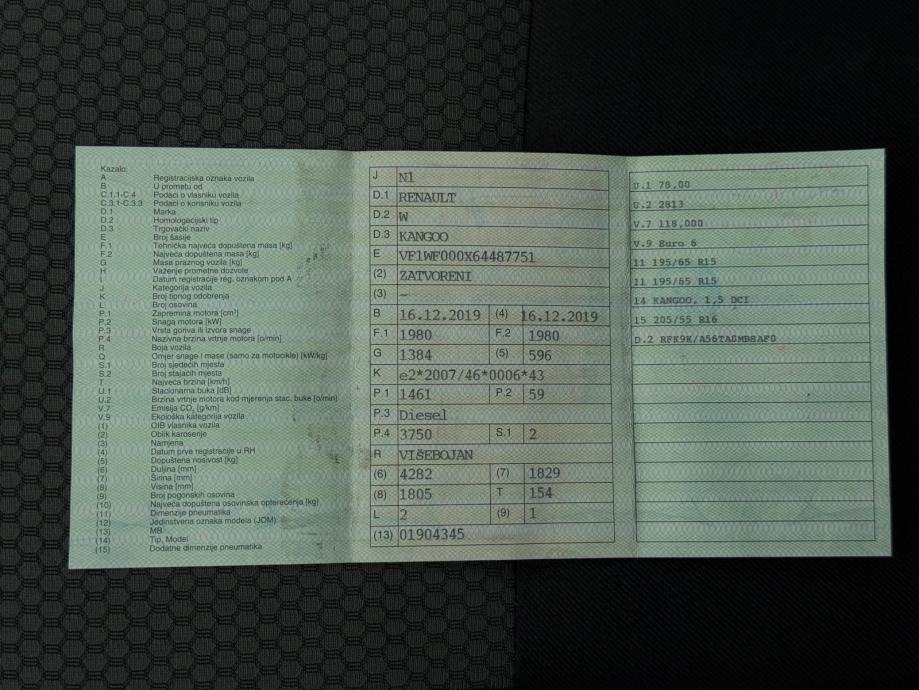 Kazalo:
A Registracijska oznaka vozila
B U prometu od
C.1.1-C.4 Podaci o vlasniku vozila
C.3.1-C.3.3 Podaci o korisniku vozila
D.1 Marka
D.2 Homologacijski tip
D.3 Trgovački naziv
E Broj šasije
F.1 Tehnička najveća dopuštena masa [kg]
F.2 Najveća dopuštena masa [kg]
G Masa praznog vozila [kg]
H Važenje prometne dozvole
I Datum registracije reg. oznakom pod A
J Kategorija vozila
K Broj tipnog odobrenja
L Broj osovina
P.1 Zapremina motora [cm³]
P.2 Snaga motora [kW]
P.3 Vrsta goriva ili izvora snage
P.4 Nazivna brzina vrtnje motora [o/min]
R Boja vozila
Q Omjer snage i mase (samo za motocikle) [kW/kg]
S.1 Broj sjedećih mjesta
S.2 Broj stajaćih mjesta
T Najveća brzina [km/h]
U.1 Stacionarna buka [dB]
U.2 Brzina vrtnje motora kod mjerenja stac. buke [o/min]
V.7 Emisija CO₂ [g/km]
V.9 Ekološka kategorija vozila
(1) OIB vlasnika vozila
(2) Oblik karoserije
(3) Namjena
(4) Datum prve registracije u RH
(5) Dopuštena nosivost [kg]
(6) Duljina [mm]
(7) Širina [mm]
(8) Visina [mm]
(9) Broj pogonskih osovina
(10) Najveća dopuštena osovinska opterećenja [kg]
(11) Dimenzije pneumatika
(12) Jedinstvena oznaka modela (JOM)
(13) MB
(14) Tip, Model
(15) Dodatne dimenzije pneumatika
J N1
D.1 RENAULT
D.2 W
D.3 KANGOO
E VF1WF000X64487751
(2) ZATVORENI
(3) –
B 16.12.2019 (4) 16.12.2019
F.1 1980 F.2 1980
G 1384 (5) 596
K e2*2007/46*0006*43
P.1 1461 P.2 59
P.3 Diesel
P.4 3750 S.1 2
R VIŠEBOJAN
(6) 4282 (7) 1829
(8) 1805 T 154
L 2 (9) 1
(13) 01904345
U.1 78,00
U.2 2813
V.7 118,000
V.9 Euro 6
11 195/65 R15
11 195/65 R15
14 KANGOO, 1,5 DCI
15 205/55 R16
D.2 RFK9K/A56TA0MB8AF0